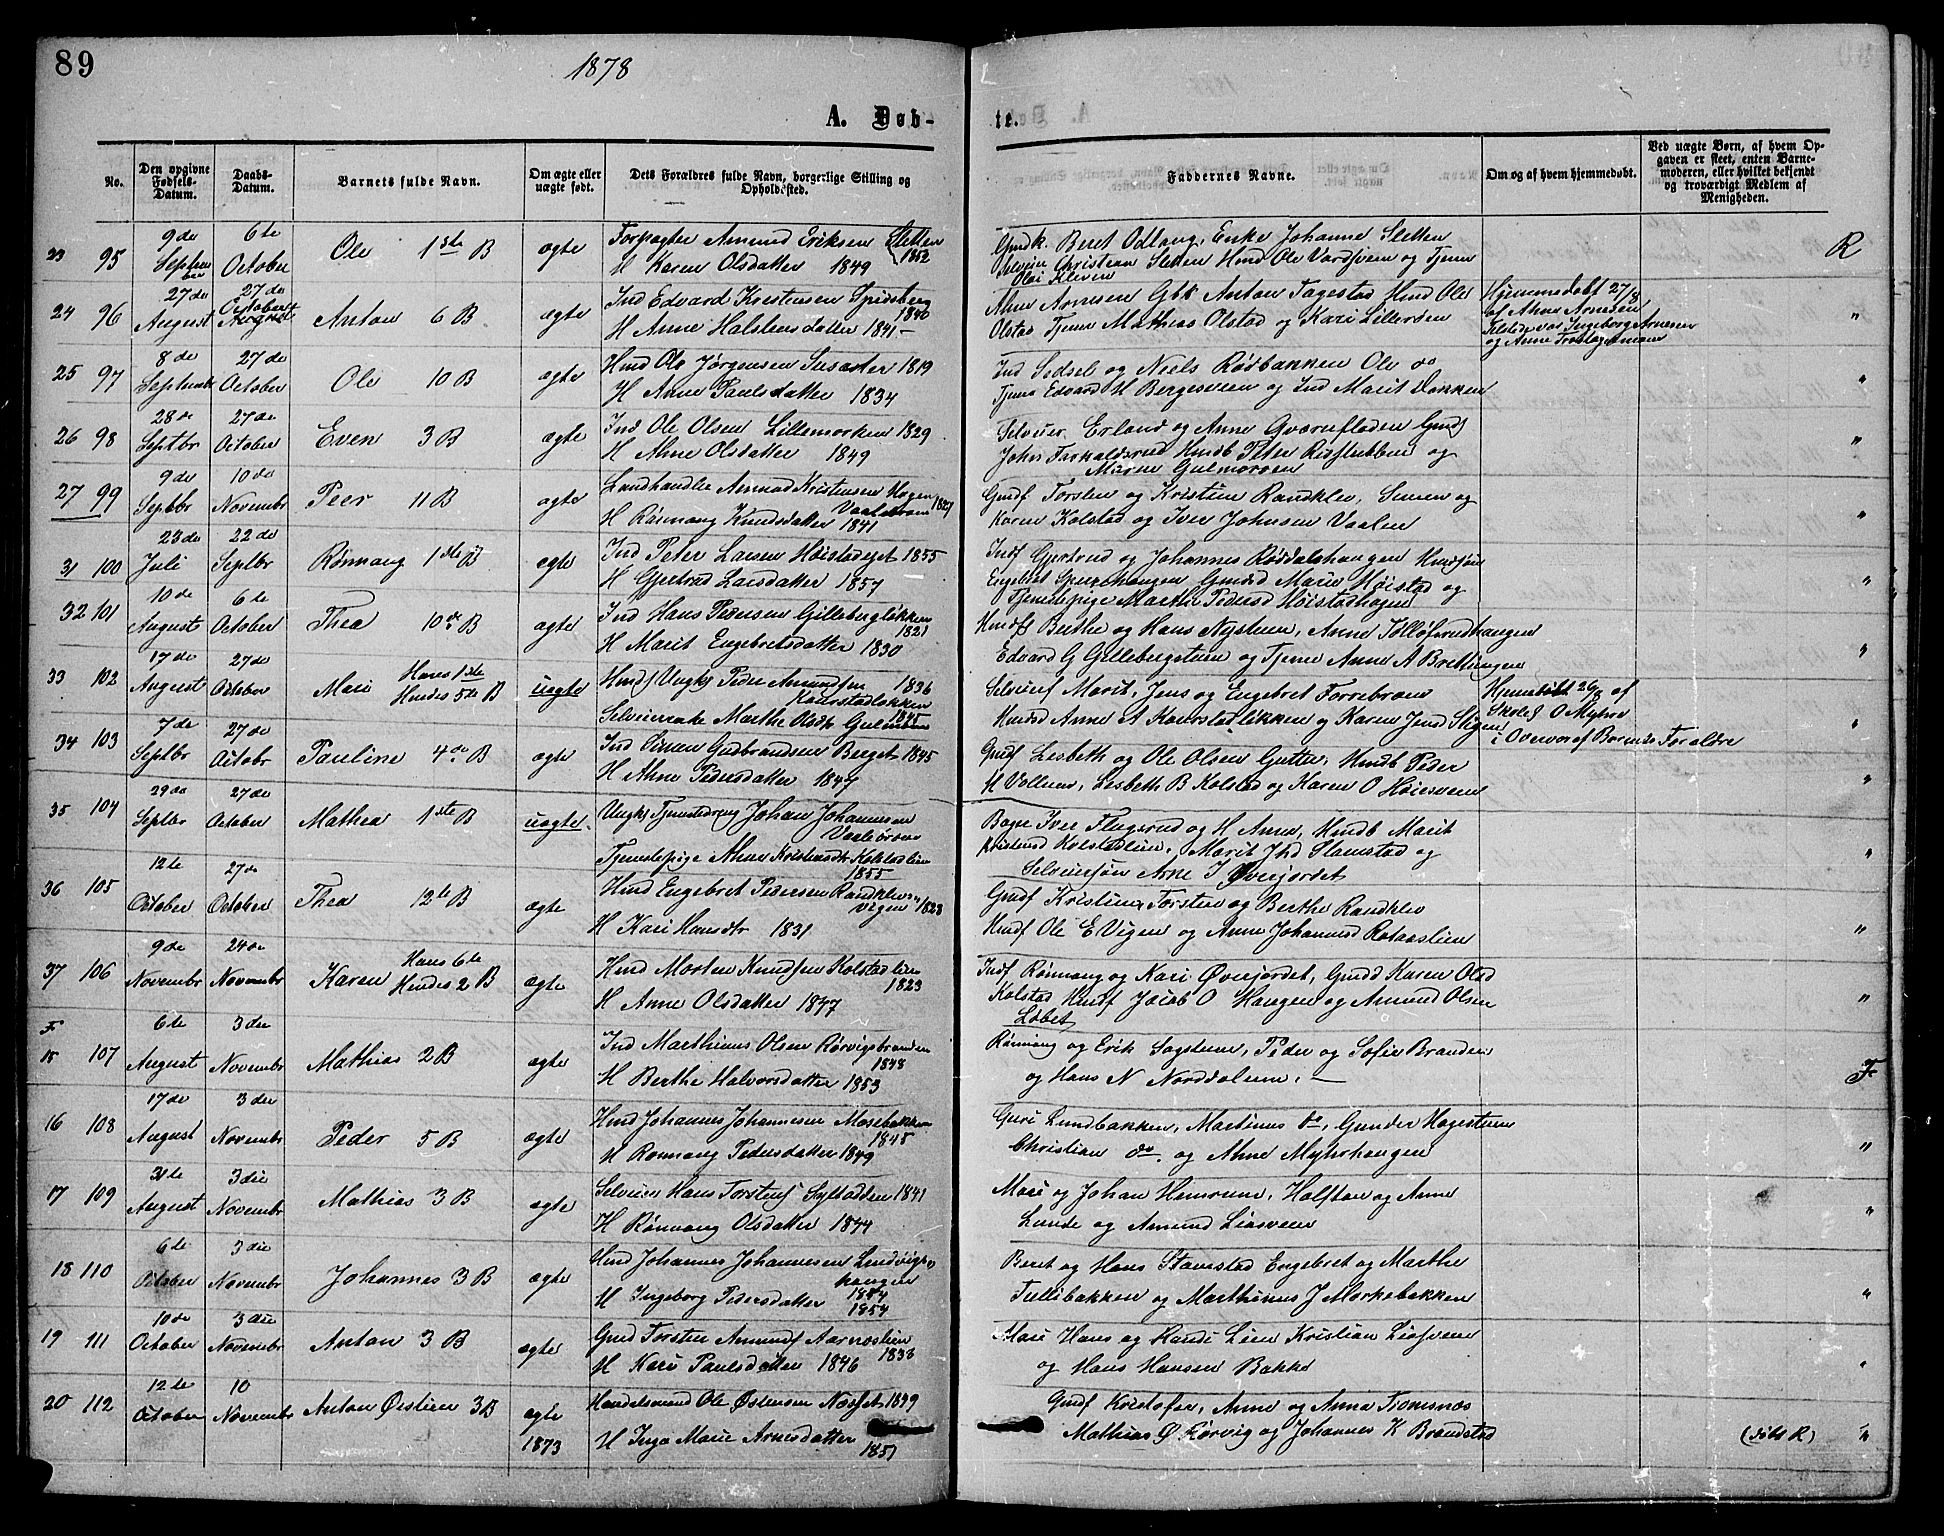 89
1878
A. Døb-
te.
No.
Den opgivne Fødsels-Datum.
Daabs-Datum.
Barnets fulde Navn.
Om ægte eller uægte født.
Dets Forældres fulde Navn, borgerlige Stilling og Opholdssted.
Faddernes Navne.
Om og af hvem hjemmedøbt.
Ved uægte Børn, af hvem Opgaven er skeet, enten Barnemoderen, eller hvilket bekjendt og troværdigt Medlem af Menigheden.
23 95 9de Septem ber 6te October Ole 1ste B ægte Forpagter Amund Eriksen Sletten 1852
H Karen Olsdatter 1849
Gmdk. Beret Odlaug, Enke Johanne Sletten
Christian Sletten Hmd Ole Vardsveen og Tjener
Kleven
R
24 96 27de August 27de October Anton 6 B ægte Ind Edvard Kristensen Spidsberg 1840
H Anne Halstensdatter 1841
Ahne Arnesen Gbk Anton Fagestad Hmd Ole
Olstad Tjener Mathias Olstad og Kari Lillerøen
Hjemmedøbt 27/8
af Ahne Arnesen
Tilstede var Ingeborg Arnesen
og Anne
"
25 97 8de Septembr 27de October Ole 10 B ægte Hmd Ole Jørgensen Susaeter 1819
H Anne Paulsdatter 1834
Ind Sidsel og Niels Rødbakken Ole do
Tjener Edvard H Bergesveen og Ind Marit Dokken
"
26 98 28de Septbr 27de October Even 3 B ægte Ind Ole Olsen Lillemorken 1829
H Ahne Olsdatter 1849
Selveier Erland og Anne Gværnfloden Gmds
Johs Hmdb Peter og
Marie Gulmoroen
"
27 99 9de Septbr 10de Novembr Peer 11 B ægte Landhandler Amund Kristensen Hagen Vaalebroen 1827
H Rønnaug Knudsdatter 1841
Gmdf Torsten og Kristine Randklev, Simen og
Karen Kolstad og Iver Johnsen Vaalen
"
31 100 23de Juli 22de Septbr Rønnaug 1ste B ægte Ind Peter Larsen Høistadeget 1855
H Gjertrud Larsdatter 1857
Indf Gjertrud og Johannes Røddalshaugen Hmdsøn
Engebret Gmdd Marie Høistad og
Tjenestepige Marthe Pedersd Høistadhagen
"
32 101 10de August 6te October Thea 10de B ægte Ind Hans Pedersen Gillebergløkken 1821
H Marit Engebretsdatter 1830
Hmdf Berthe og Hans Nysteen, Anne Tolløfsrudhaugen
Edvard G Gillebergsteen og Tjener Anne A Brettingen
"
33 102 17de August 27de October Mari Hans 1ste Hendes 5te B uægte Hmds Ungk Peder Amundsen 1836
Kaarstadløkken
Selveierenke Marthe Olsdtr Gulmoen 1845
Selveierf Marit, Jens og Engebret Forrebroen
Hmdd Anne A Kaarstadløkken og Karen Jensd Stigen
Hjemdøbt 26/8 af
Skolel O Myhre
i Overvær af Barnets Forældre
"
34 103 7de Septbr 27de Octobr Pauline 4de B ægte Ind Simen Gudbrandsen Berget 1845
H Ahne Pedersdatter 1847
Gmdf Lisbeth og Ole Olsen Gutter, Hmdb Peder
H Vollum, Lisbeth B Kolstad og Karen O Høiesveen
"
35 104 29de Septbr 27de October Mathea 1ste B uægte. Ungk Tjenestedreng Johan Johannesen
Vaalebroen
Tjenestepige Ahne Kristensdtr Kolstadlien 1855
Iver Flugsrud og H Anne, Hmdb Marit
Kristensd Kolstadlien, Marit Jhd Slamstad og
Selveiersøn Arne I Øverjordet
"
36 105 12te October 27de October Thea 12te B ægte Hmd Engebret Pedersen Randklevvigen 1823
H Kari Hansdtr 1831
Gmdf Kristine, Torsten og Berthe Randklev
Hmdf Ole E Vigen og Anne Johannesd Rotaaslien
"
37 106 9de Novembr 24de Novembr Karen Hans 6te Hendes 2 B ægte Hmd Morten Knudsen Kolstadlien 1823
H Anne Olsdatter 1847
Indf Rønnaug og Kari Øverjordet, Gmdd Karen Olsd
Kolstad Hmdf Jacob O Haugen og Amund Olsen
Løbet
"
F
15 107 6te August 3die Novembr Mathias 2 B ægte Ind Marthinus Olsen Rørvigsbranden 1848
H Berthe Halvorsdatter 1853
Rønnaug og Erik Sagsteen, Peder og Sofie Branden
og Hans N Norddølum. —
F
16 108 17de August 3die Novembr Peder 5 B ægte Hmd Johannes Johannesen Mosebakken 1845
H Rønnaug Pedersdatter 1849
Guri Lundbakken, Martinus do, Gunder Hagesteen
Christian do. og Ahne Myhrhaugen
"
17 109 31te August 3die Novembr Mathias 3 B ægte Selveier Hans Torstens Sylladden 1841
H Rønnaug Olsdatter 1844
Mari og Johan Hemrum, Halftan og Anne
Lunde og Amund Liasveen
"
18 110 6te October 3die Novembr Johannes 3 B ægte Hmd Johannes Johannesen Lundvigs-
haugen 1854
H Ingeborg Pedersdatter 1854
Beret og Hans Stamstad Engebret og Marthe
Tullibakken og Marthinus J Mørkebakken
"
19 111 10de October 3die Novembr Anton 3 B ægte Gmd Torsten Amunds Aarnæslien 1838
H Kari Paulsdatter 1846
Mari Hans og Lien Kristian Liasveen
og Hans Hansen Bakke
"
20 112 12te October 10 Novembr Anton Øistien 3 B ægte
1873
Handelsmand Ole Østensen Næsset 1849
H Inga Marie Arnesdatter 1851
Gmdf Kristofer, Anne og Anna Tromsnæs
Mathias Ø Rørvig og Johannes K Brandstad
(døbt R)
"